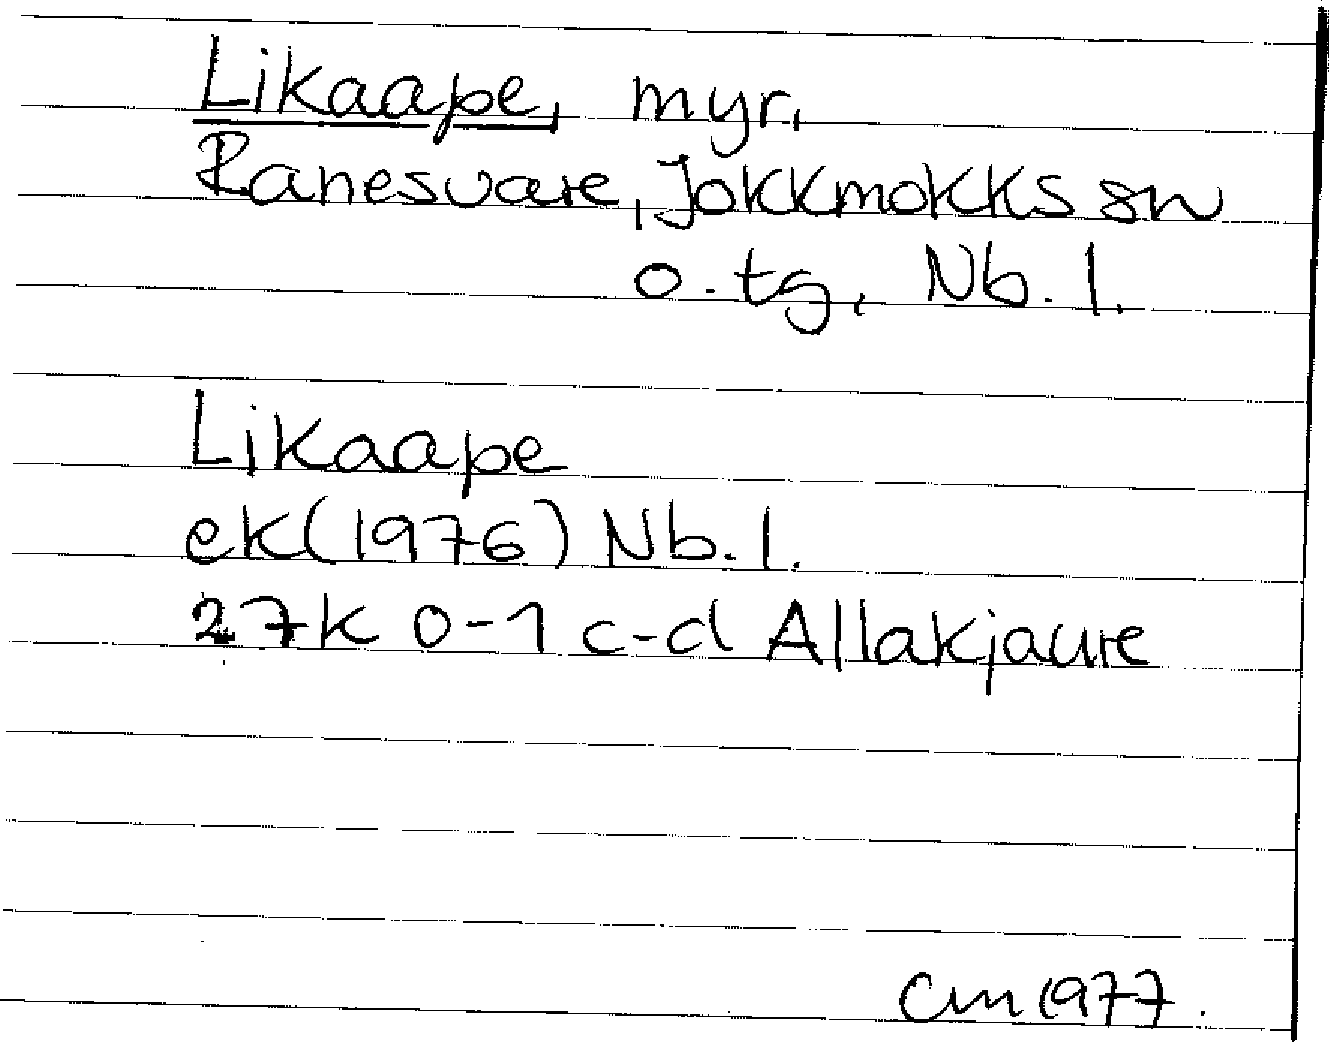 Likaape, myr,
Ranesvare, Jokkmokks sn
o. tg, Nb. l.
Likaape
ek (1976) Nb. l.
27k 0-1 c-d Allakjaure
Cm 1977.